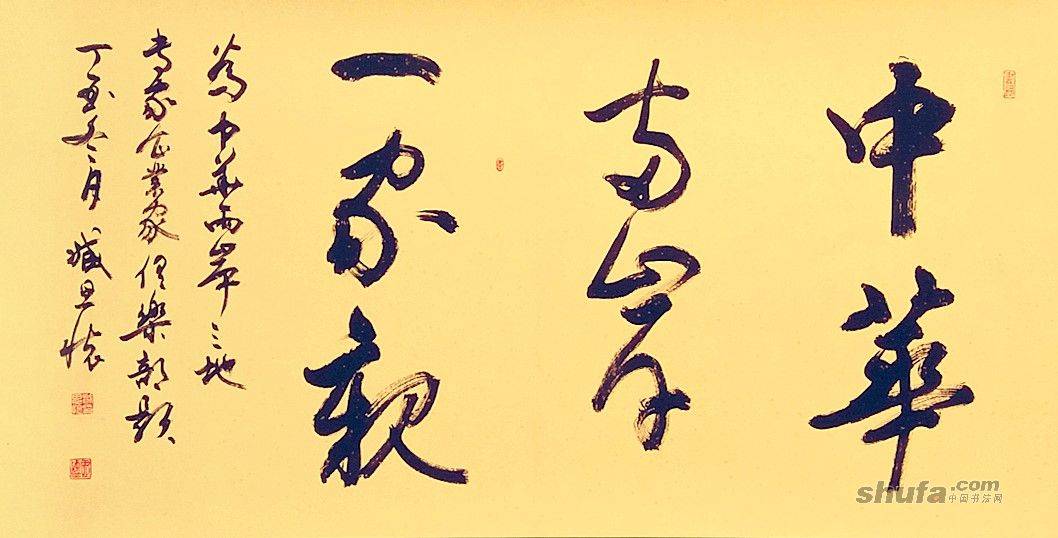 中華
两岸
一家親
為中華兩岸三地
专家企業家俱樂部題
丁亥冬月 臧思懷
shufa.com
中国书法网